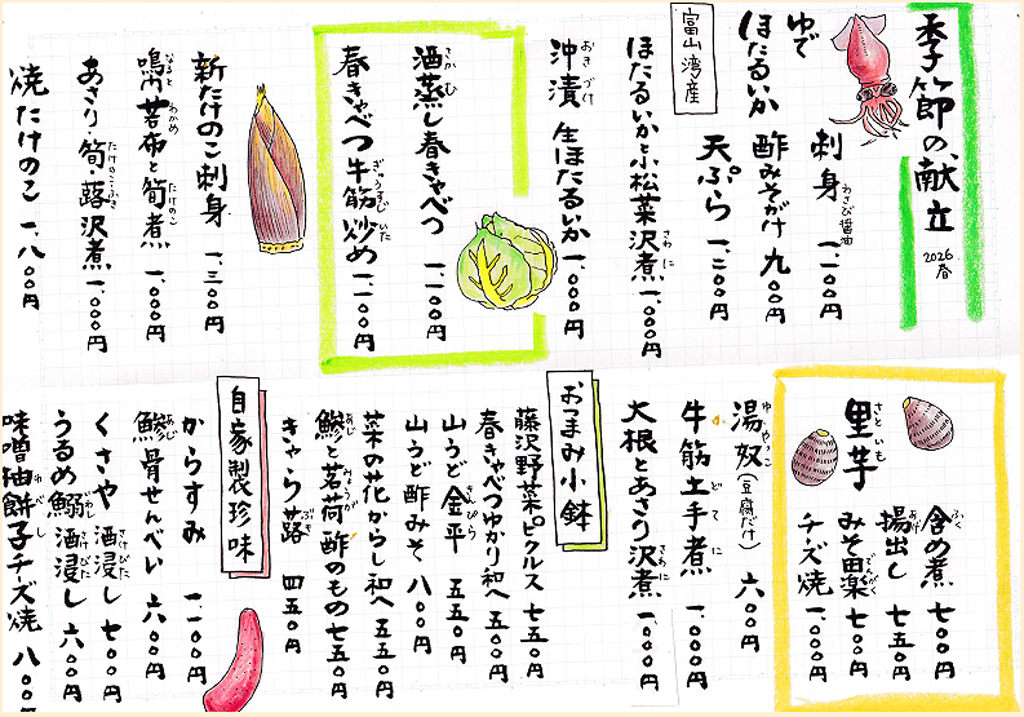 季節の献立
2026
春
ゆで
ほたるいか
富山湾産
刺身 わさび醤油 一、一〇〇円
酢みそがけ 九〇〇円
天ぷら 一、二〇〇円
さわに
ほたるいかと小松菜沢煮 一、〇〇〇円
おきづけ
沖漬 生ほたるいか 一、〇〇〇円
さかむ
酒蒸し春きゃべつ 一、一〇〇円
ぎゅうすじ いた
春きゃべつ牛筋炒め 一、一〇〇円
新たけのこ刺身 一、三〇〇円
なると わかめ たけのこ
鳴門若布と筍煮 一、〇〇〇円
たけのこ ふき
あさり・筍・蕗沢煮 一、〇〇〇円
焼たけのこ 一、八〇〇円
さといも
里芋
ふく
含め煮 七〇〇円
あげ
揚出し 七五〇円
でんがく
みそ田楽 七〇〇円
チーズ焼 一、〇〇〇円
ゆやっこ
湯奴(豆腐だけ) 六〇〇円
どてに
牛筋土手煮 一、〇〇〇円
さわに
大根とあさり沢煮 一、〇〇〇円
おつまみ小鉢
藤沢野菜ピクルス 七五〇円
春きゃべつゆかり和へ 五〇〇円
きんぴら
山うど金平 五五〇円
山うど酢みそ 八〇〇円
菜の花からし和へ 五五〇円
あじ みょうが
鯵と茗荷酢のもの 七五〇円
ぶき
きゃら蕗 四五〇円
自家製珍味
からすみ 一、一〇〇円
あじ
鯵骨せんべい 六〇〇円
さけびた
くさや酒浸し 七〇〇円
いわし さけびた
うるめ鰯酒浸し 六〇〇円
ゆべし
味噌柚餅子チーズ焼 八〇〇円